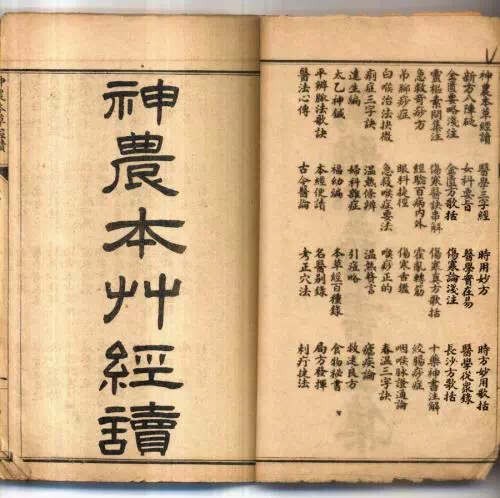 神農本草經讀 醫學三字經 時用妙方 時方妙用歌括
新方八陣砭 女科要旨 醫學實在易 醫學從衆錄
金匱要略淺注 金匱方歌括 傷寒論淺注 長沙方歌括
靈樞素問集注 傷寒醫訣串解 傷寒真方歌括 十藥神書注解
急救奇痧方 經驗百病內外 霍亂轉筋 絞腸痧症
吊腳痧症 眼科捷徑 傷寒舌鑑 咽喉脉證通論
白喉治法抉微 急救喉症要法 喉痧正的 春溫三字訣
痢症三字訣 溫熱條辨 溫熱贅言 瘧疾論
達生編 婦科雜症 引痘略 救迷良方
太乙神鍼 福幼編 本草經百種錄 食物秘書
平辨脉法歌訣 本經便讀 名醫別錄 局方發揮
醫法心傳 古今醫論 考正穴法 刺疔捷法
神農本艸經讀
神農本草經讀